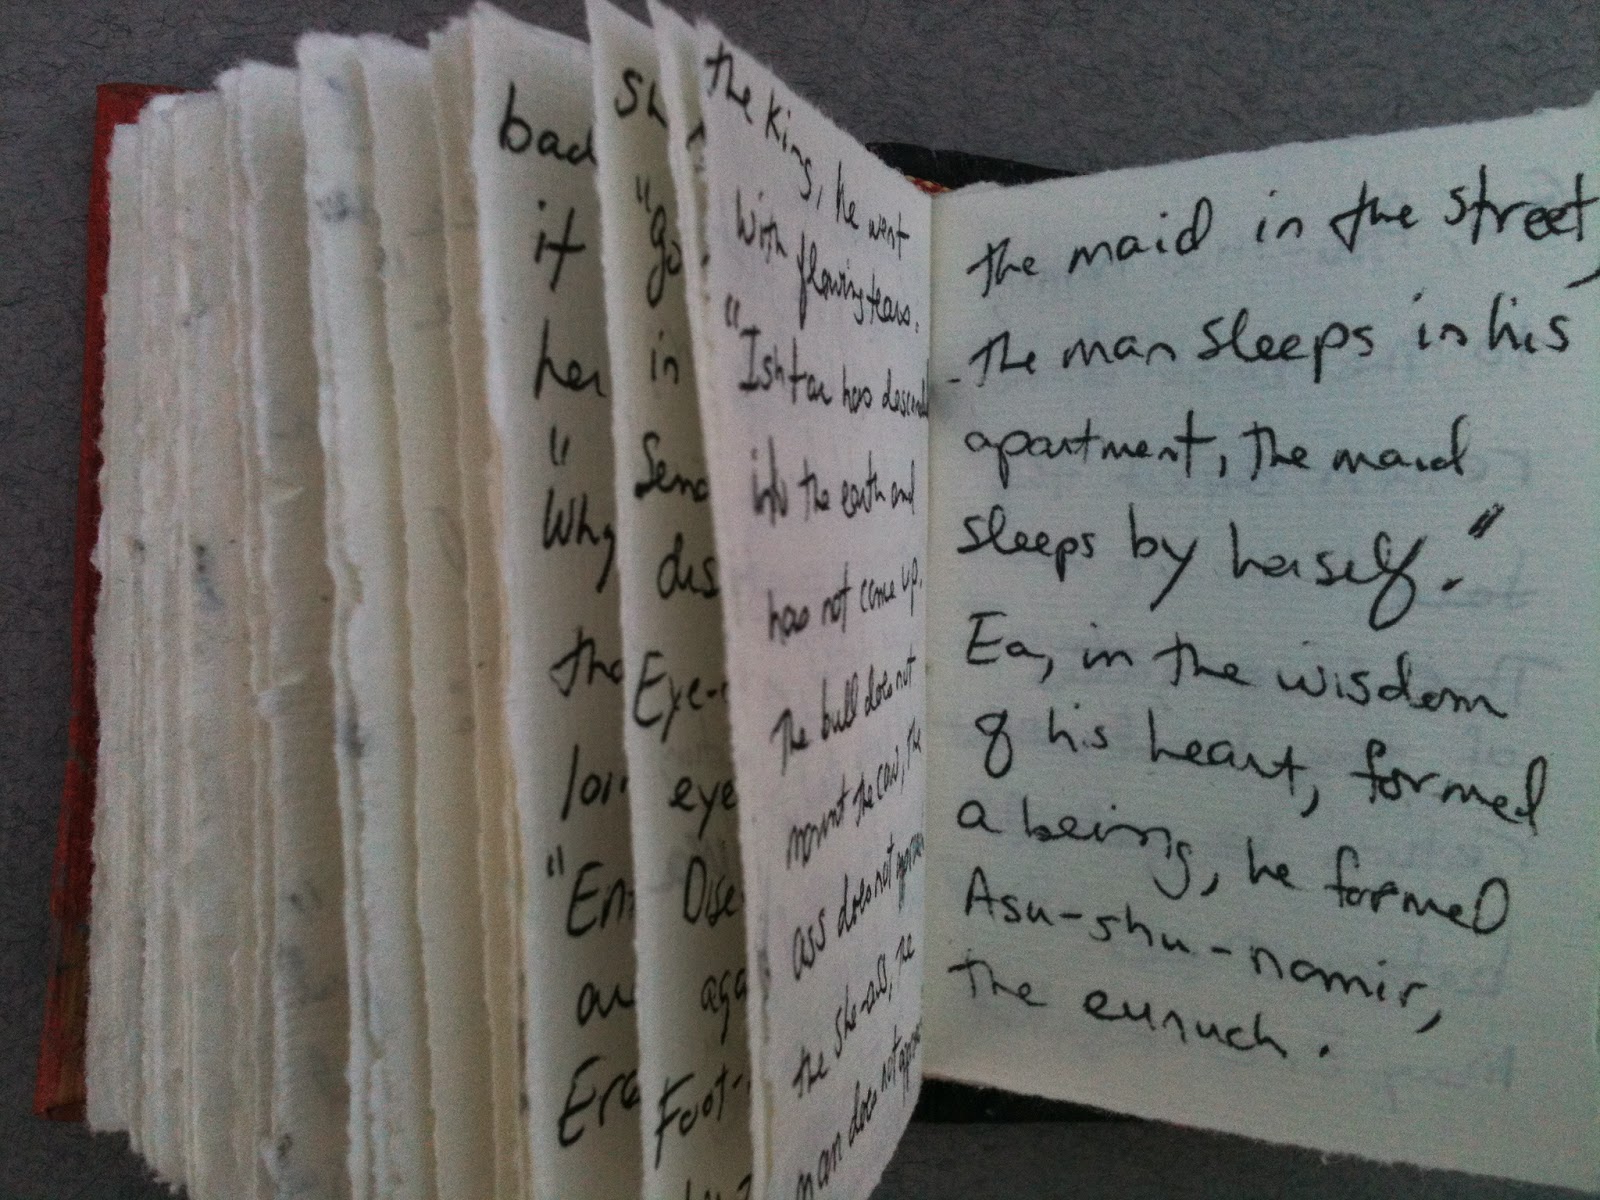 bad
it
her
"
Why
"
sh
"go
in
Send
dis
Eye-
eye
aga
Foot-
the king, he went
with flowing tears.
"Ishtar has descend
into the earth and
has not come up.
The bull does not
mount the cow, the
ass does not
the she-ass, the
man does not
the maid in the street,
the man sleeps in his
apartment, the maid
sleeps by herself."
Ea, in the wisdom
of his heart, formed
a being, he formed
Asu-shu-namir,
the eunuch.